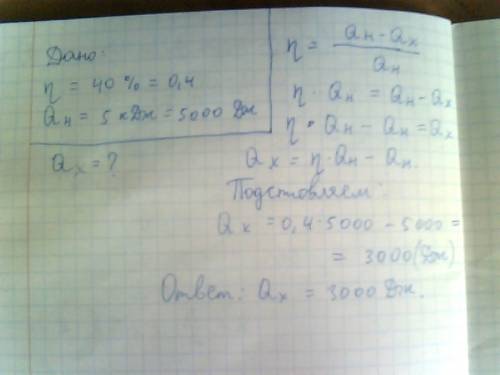 Дано:
η = 40 % = 0,4
Qн = 5 кДж = 5000 Дж
Qх = ?
η = (Qн - Qх) / Qн
η · Qн = Qн - Qх
η · Qн - Qн = Qх
Qх = η · Qн - Qн.
Подстовляем:
Qх = 0,4 · 5000 - 5000 =
= 3000 (Дж)
Ответ: Qх = 3000 Дж.